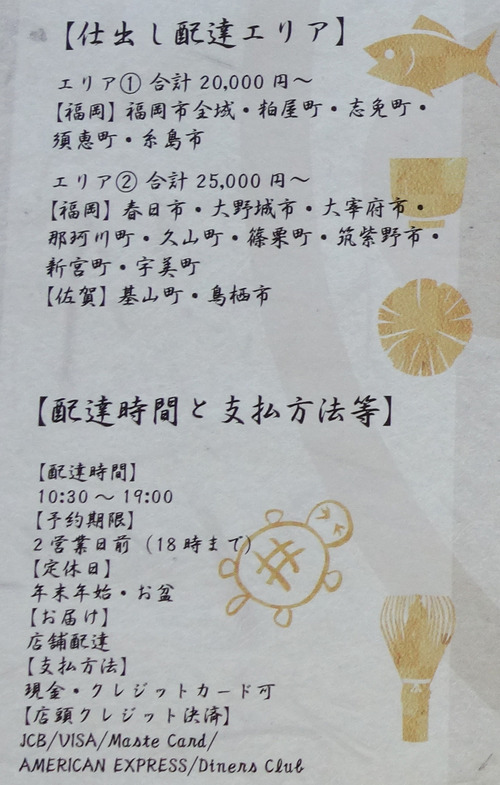 【仕出し配達エリア】
エリア① 合計 20,000 円〜
【福岡】福岡市全域・粕屋町・志免町・
須恵町・糸島市
エリア② 合計 25,000 円〜
【福岡】春日市・大野城市・大宰府市・
那珂川町・久山町・篠栗町・筑紫野市・
新宮町・宇美町
【佐賀】基山町・鳥栖市
【配達時間と支払方法等】
【配達時間】
10:30 〜 19:00
【予約期限】
2 営業日前（18 時まで）
【定休日】
年末年始・お盆
【お届け】
店舗配達
【支払方法】
現金・クレジットカード可
【店頭クレジット決済】
JCB/VISA/Maste Card/
AMERICAN EXPRESS/Diners Club